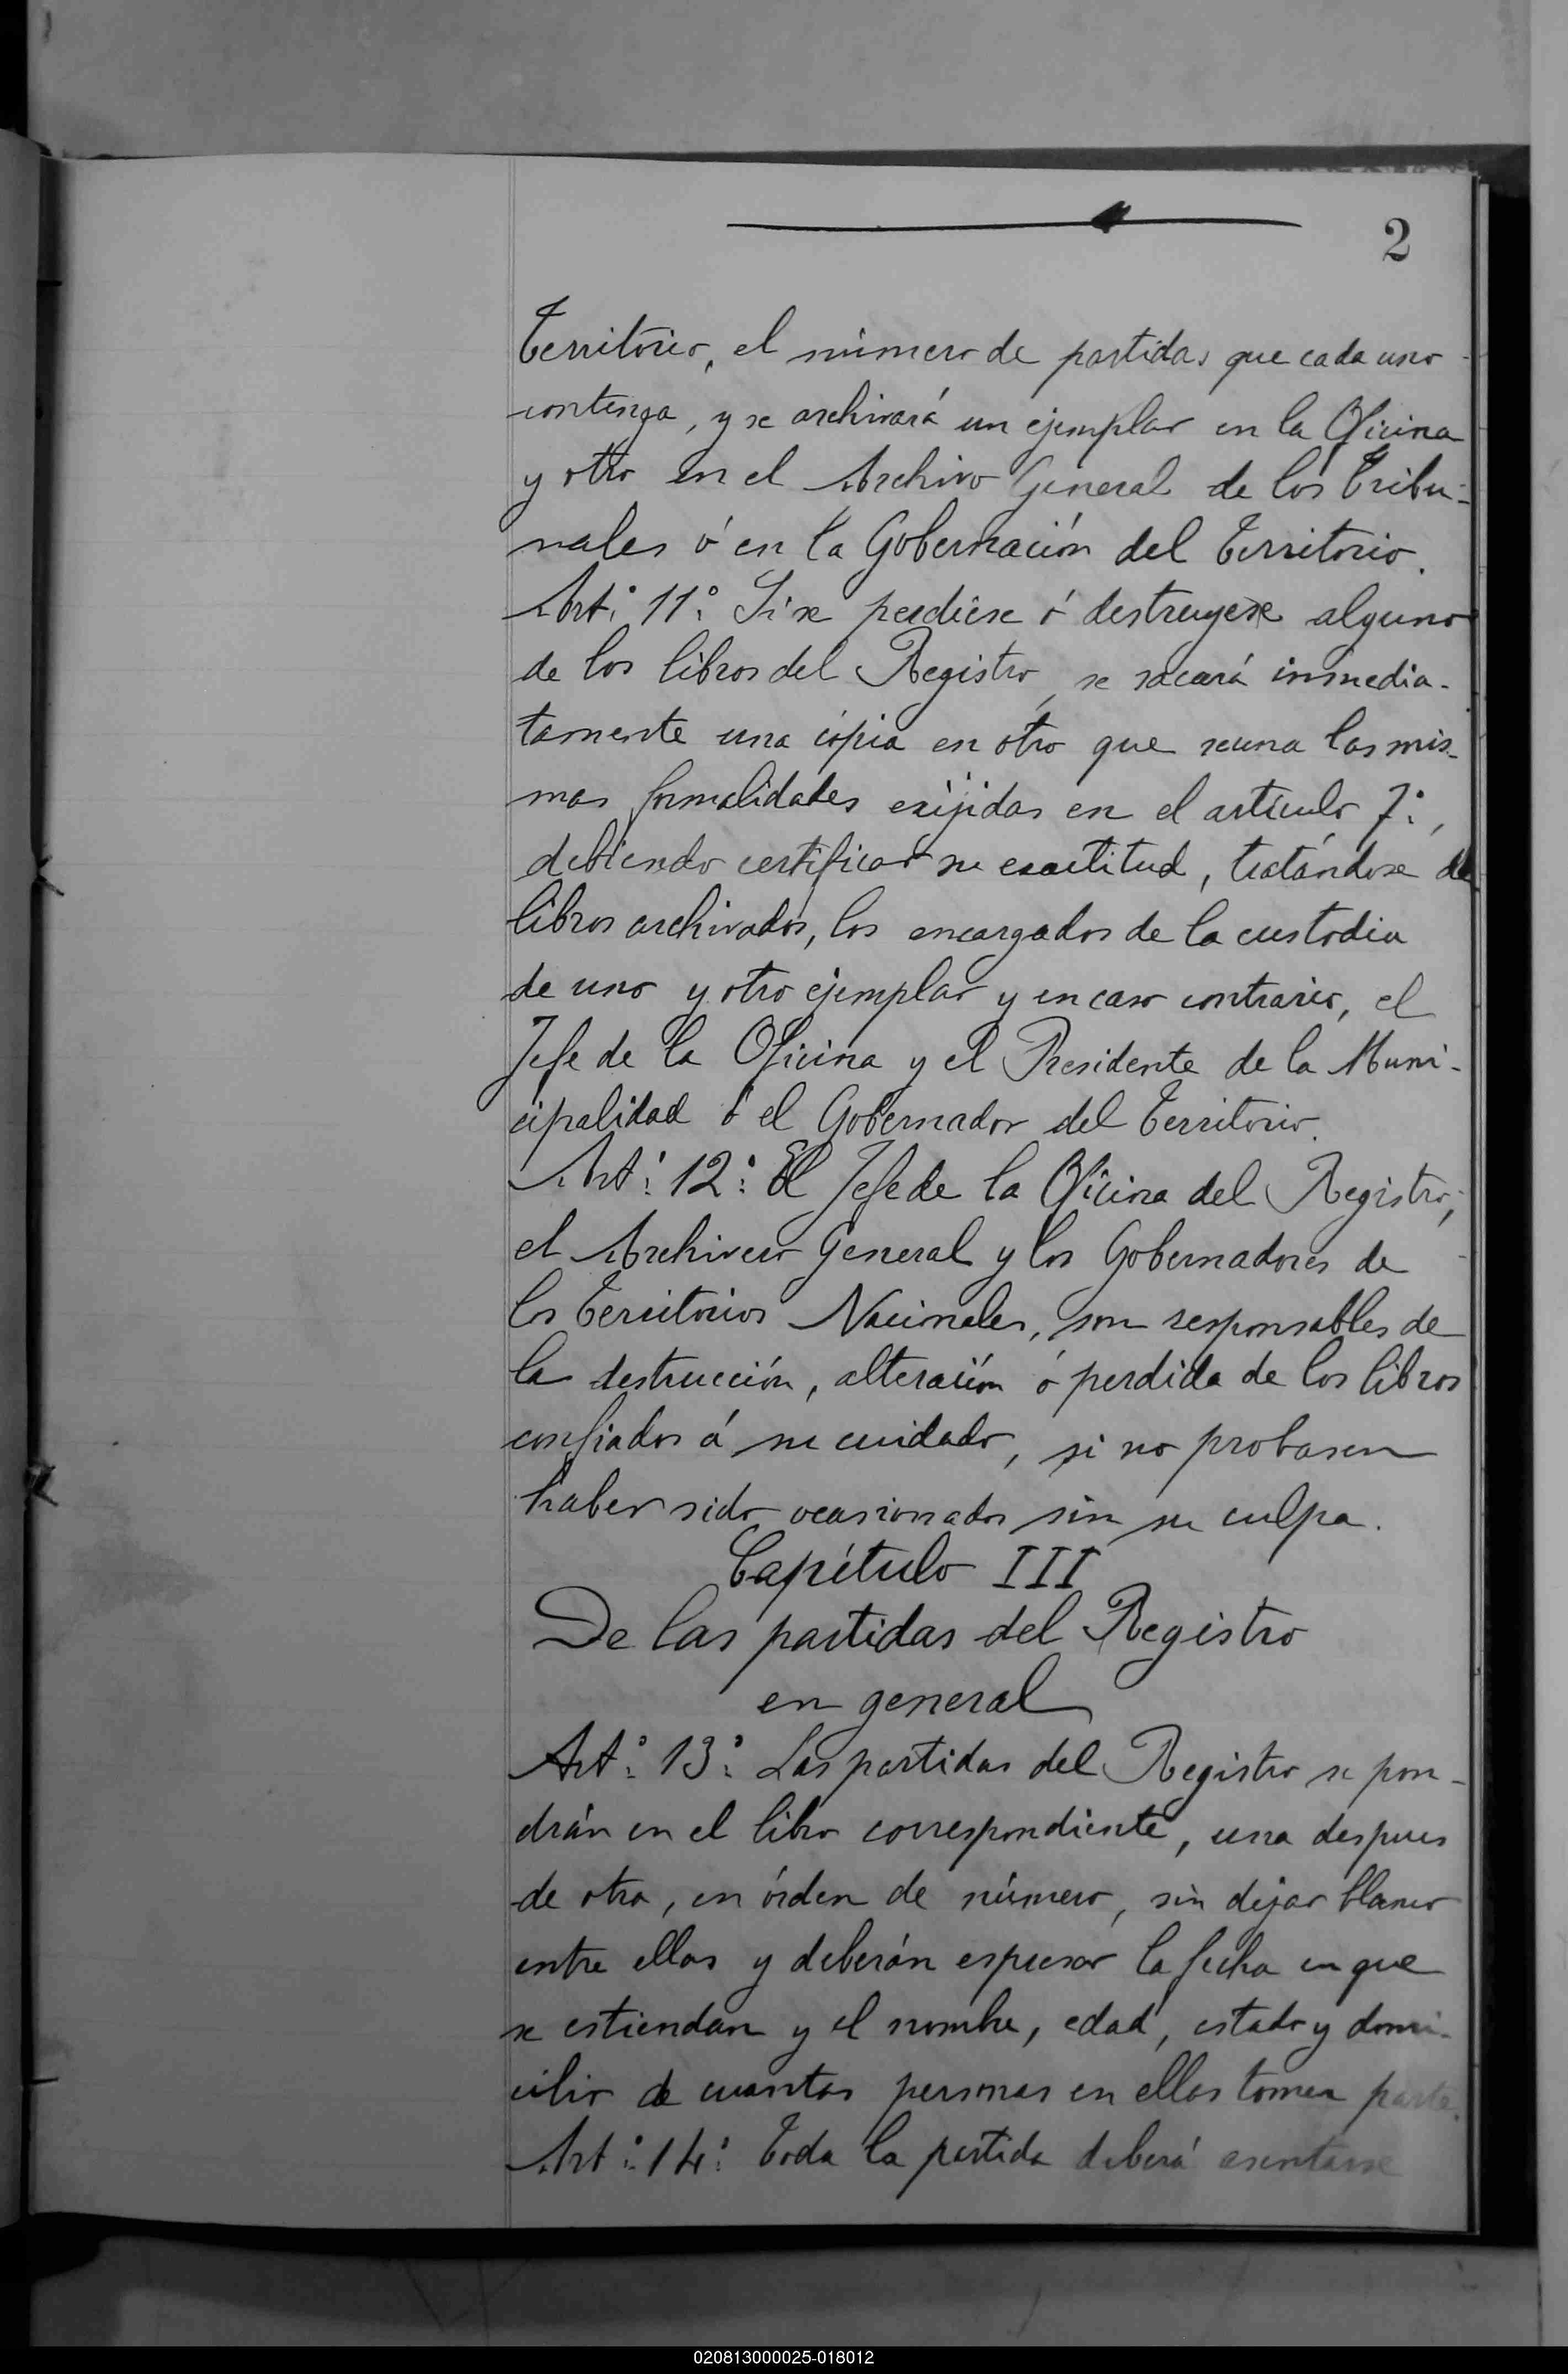 2
Territorio, el número de partidas que cada uno
contenga, y se archivará un ejemplar en la Oficina
y otro en el Archivo General de los Tribu-
nales ó en la Gobernación del Territorio.
Art.° 11.° Si se perdiese ó destruyese alguno
de los libros del Registro, se sacará inmedia-
tamente una cópia en otro que reuna las mis-
mas formalidades exijidas en el artículo 7.°,
debiendo certificar su exactitud, tratándose de
libros archivados, los encargados de la custodia
de uno y otro ejemplar y en caso contrario, el
Jefe de la Oficina y el Presidente de la Muni-
cipalidad ó el Gobernador del Territorio.
Art.° 12.° El Jefe de la Oficina del Registro,
el Archivero General y los Gobernadores de
los Territorios Nacionales, son responsables de
la destrucción, alteración ó perdida de los libros
confiados á su cuidado, si no probasen
haber sido ocasionados sin su culpa.
Capítulo III
De las partidas del Registro
en general
Art.° 13.° Las partidas del Registro se pon-
drán en el libro correspondiente, una despues
de otra, en órden de número, sin dejar blanco
entre ellas y deberán espresar la fecha en que
se estiendan y el nombre, edad, estado y domi-
cilio de cuantas personas en ellas tomen parte.
Art.° 14.° Toda la partida deberá asentarse
020813000025-018012